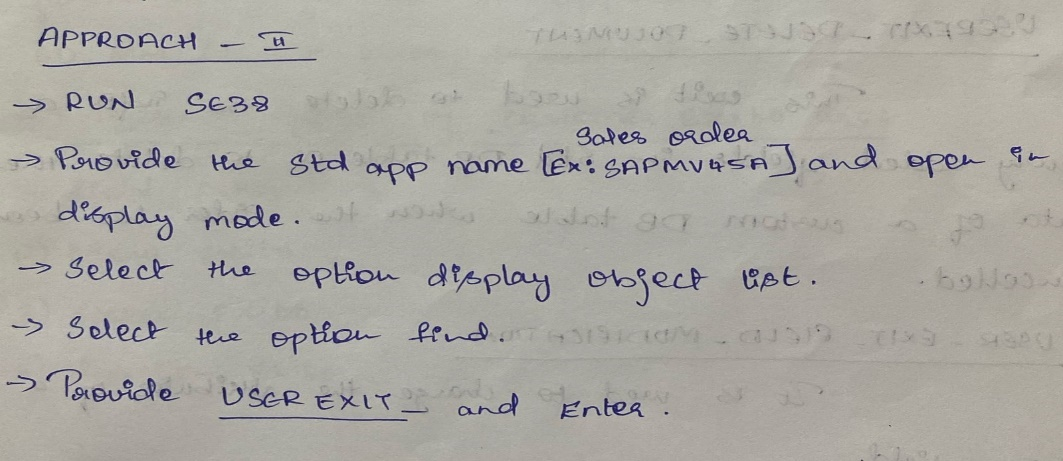 APPROACH - II
→ RUN SE38
Sales order
→ Provide the Std app name [Ex: SAPMV45A] and open in
display mode.
→ Select the option display object list.
→ Select the option find.
→ Provide USEREXIT_ and Enter.